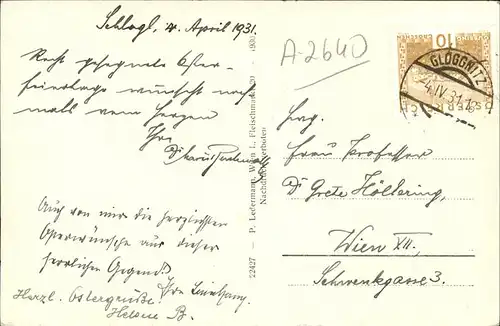 Schlagl, 4. April 1931.
Recht gesegnete Oster-
feiertage wünscht noch-
mals vom Herzen
Ihr
Auch von mir die herzlichsten
Osterwünsche aus dieser
herrlichen Gegend!
Herzl. Ostergrüße.
Helene B.
22427 – P. Ledermann, Wien I., Fleischmarkt 20 – 1930
Nachdruck verboten
A-2640
10
GROSCHEN
ÖSTERREICH
GLOGGNITZ
-4.IV.31
Frau Professor
Dr Grete Höllering,
Wien XII.,
Schwenkgasse 3.